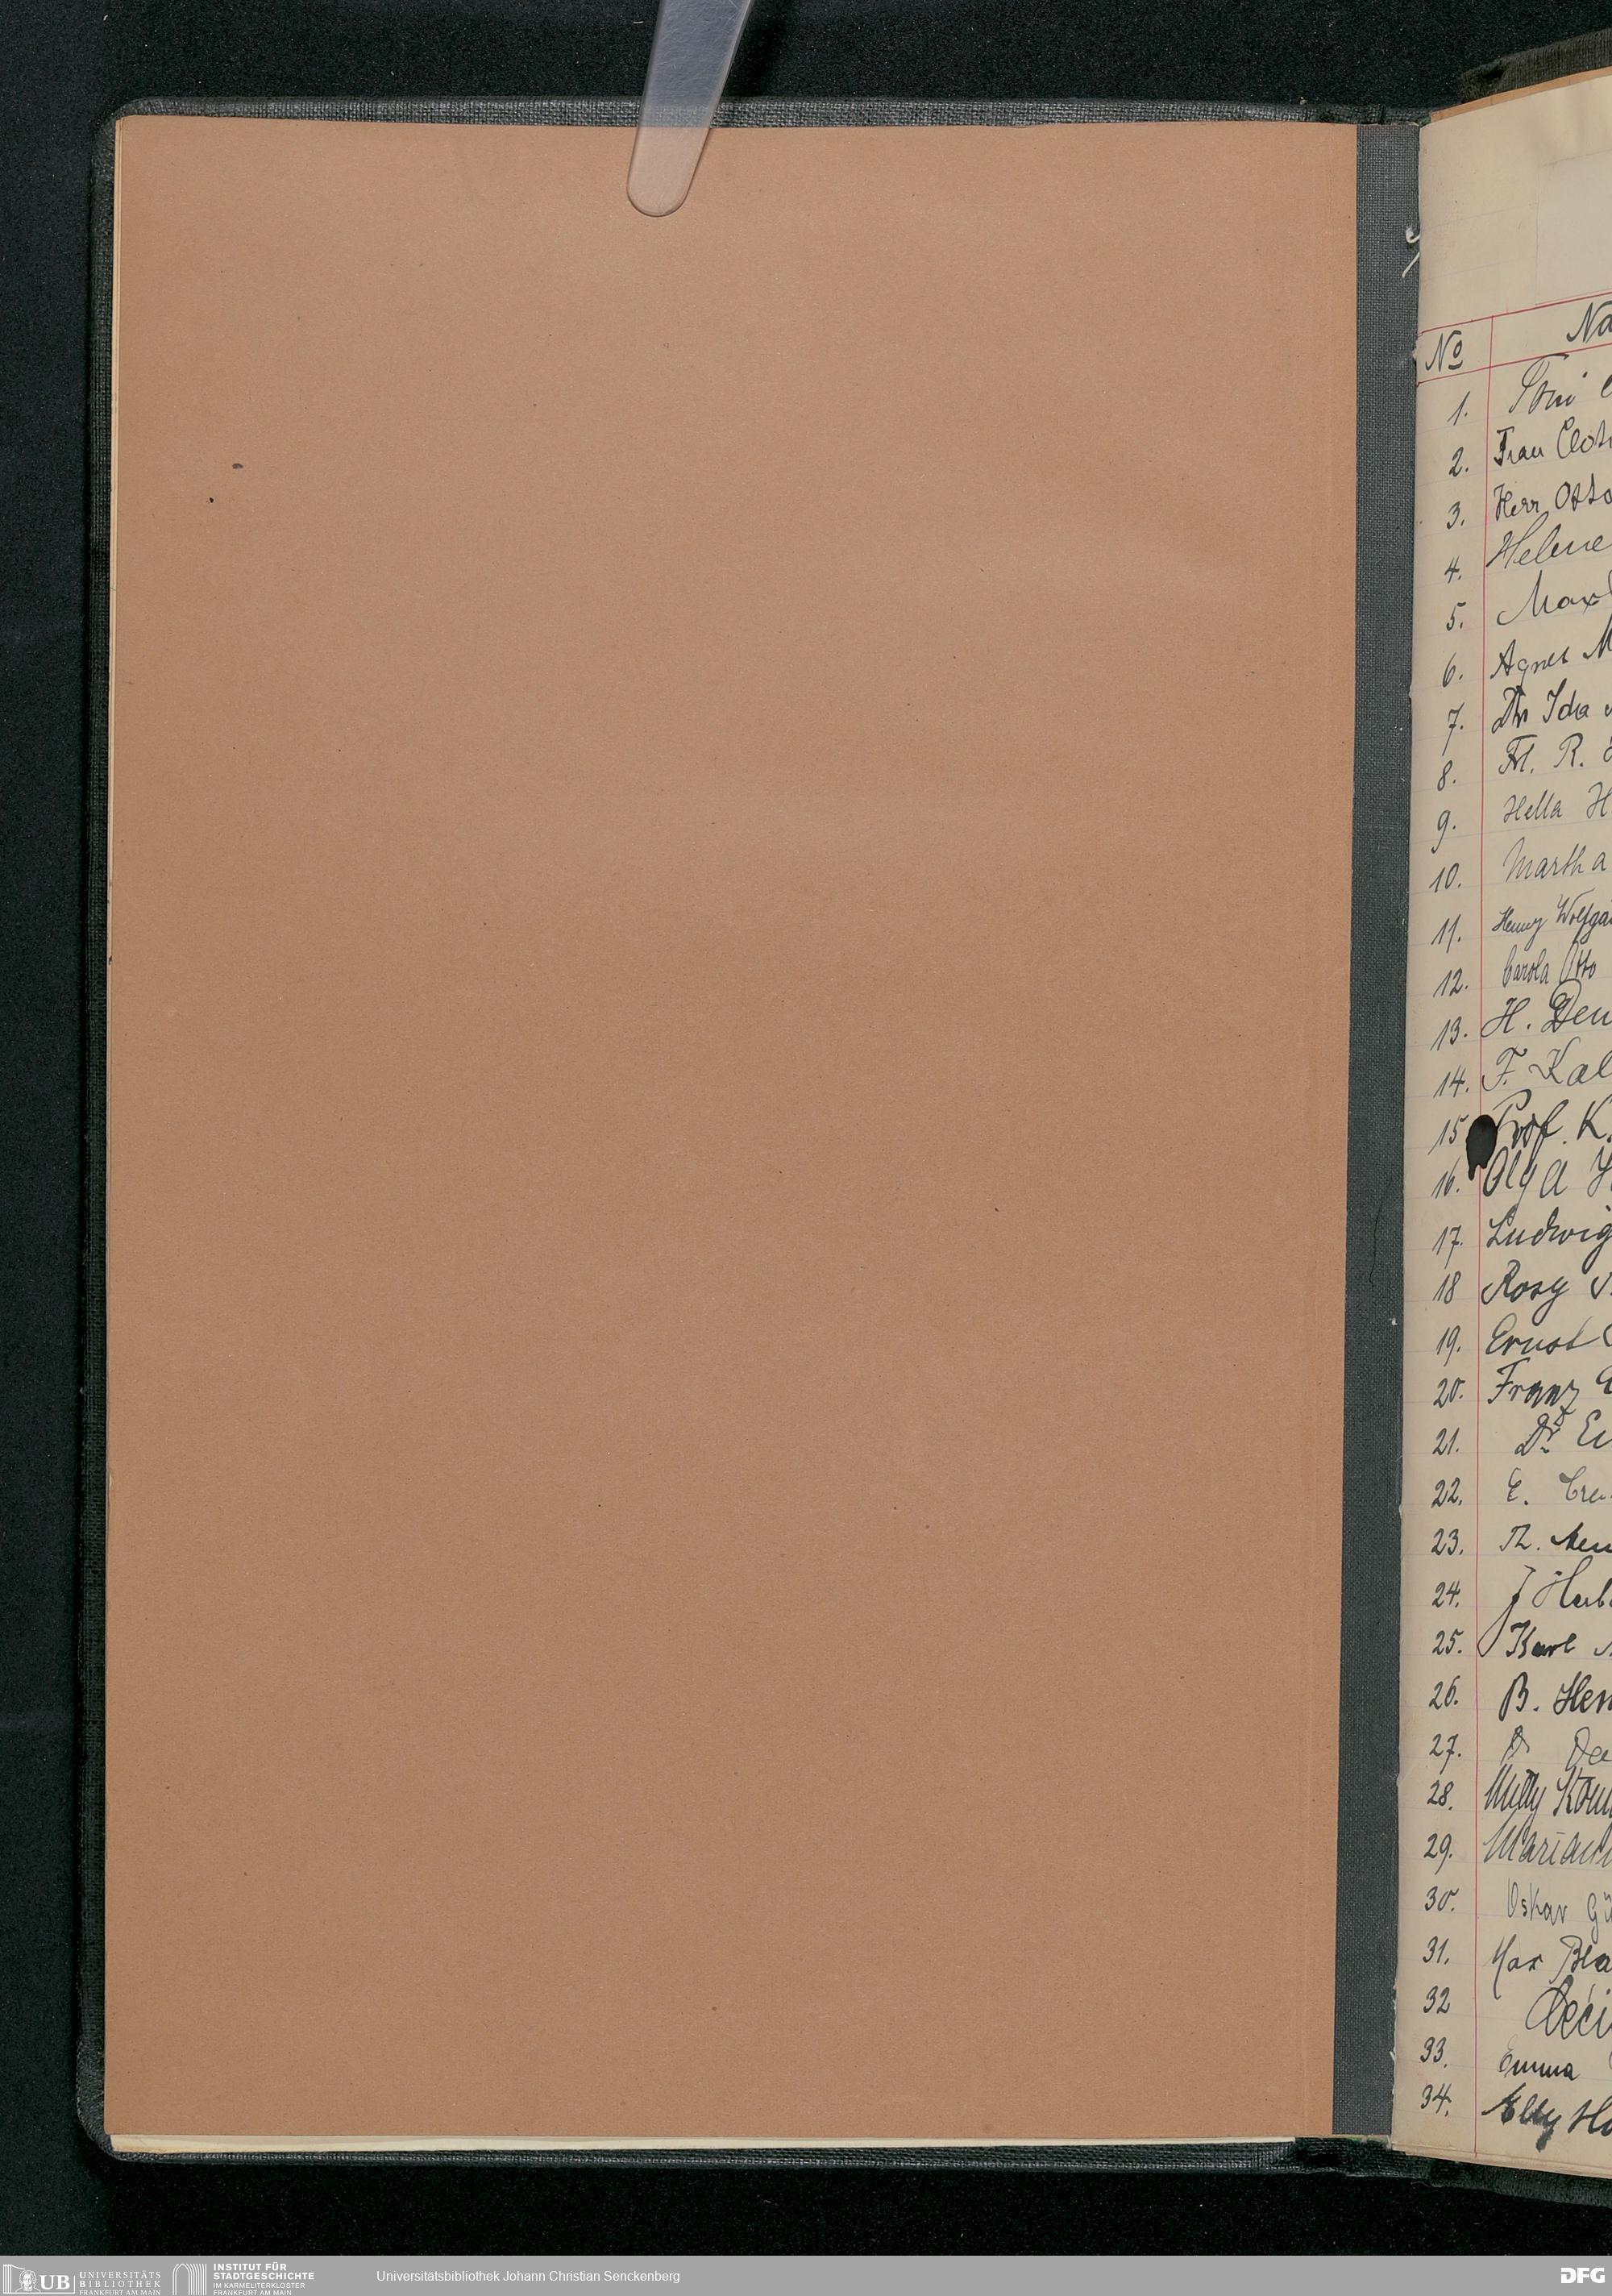 No Na
1. Toni
2. Frau Clot
3. Herr Otto
4. Helene
5. Max
6. Agnes M
7. Dr Ida
8. Frl. R.
9. Hella H
10. Martha
11. Henny Wolfga
12. Carola Otto
13. H. Den
14. F. Kal
15 Prof. K.
16. Olga
17. Ludwig
18 Rosy
19. Ernst
20. Franz
21. Dr
22. E. Cre
23. Th.
24. J
25. Karl
26. B. Her
27. Dr
28. Willy
29. Mariann
30. Oskar Gü
31. Max Bla
32 Ceci
33. Emma
34. Elly Ho
UB UNIVERSITÄTS
BIBLIOTHEK
FRANKFURT AM MAIN
INSTITUT FÜR
STADTGESCHICHTE
IM KARMELITERKLOSTER
FRANKFURT AM MAIN
Universitätsbibliothek Johann Christian Senckenberg
DFG